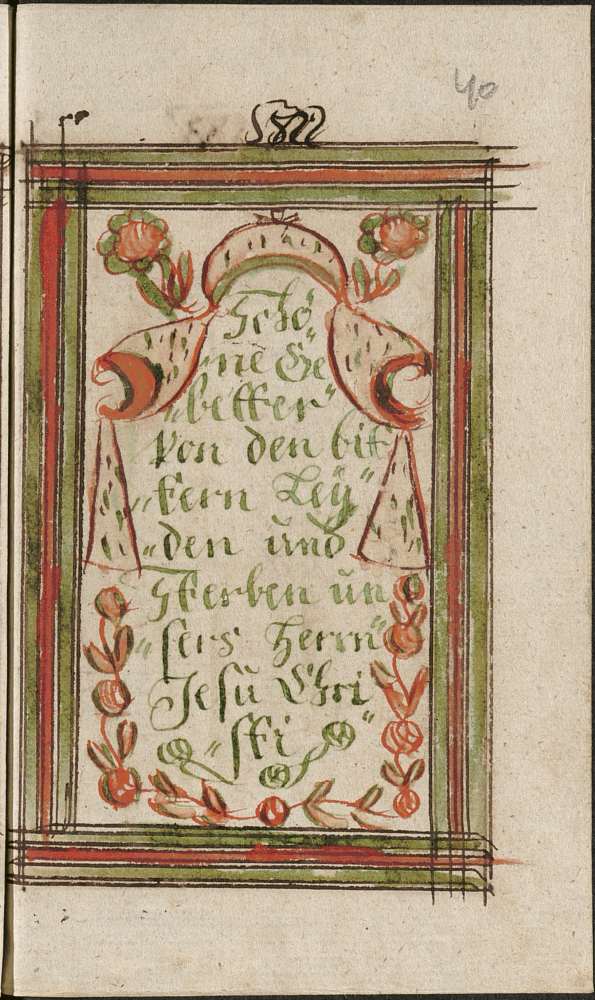 40
Schö„
„ne Ge„
„better“
Von den bit
„tern Leÿ“
„den ünd
Sterben ün
„sers Herrn“
Jesu Chri
„sti“